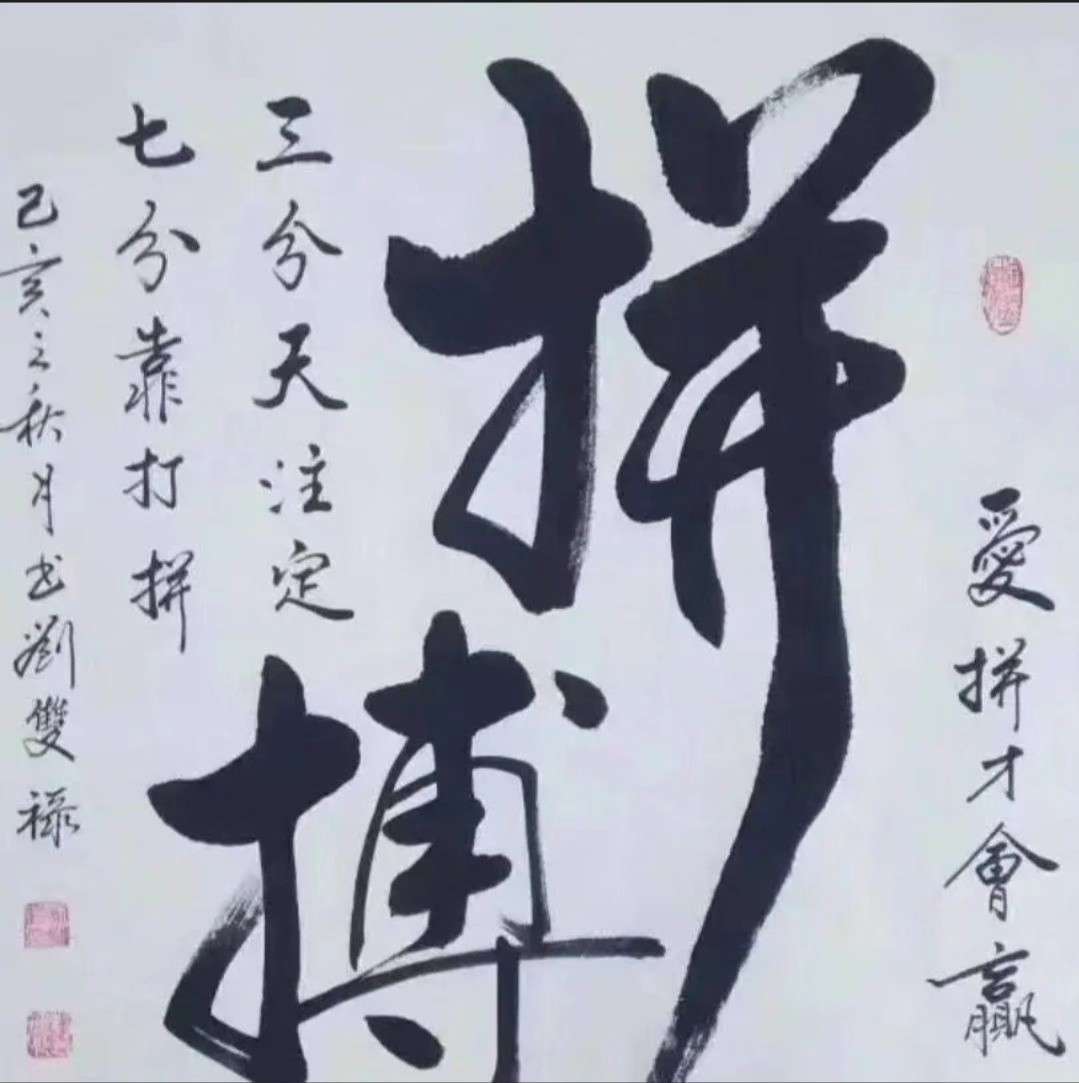 愛拼才會贏
拼搏
三分天注定
七分靠打拼
己亥之秋月書劉雙祿